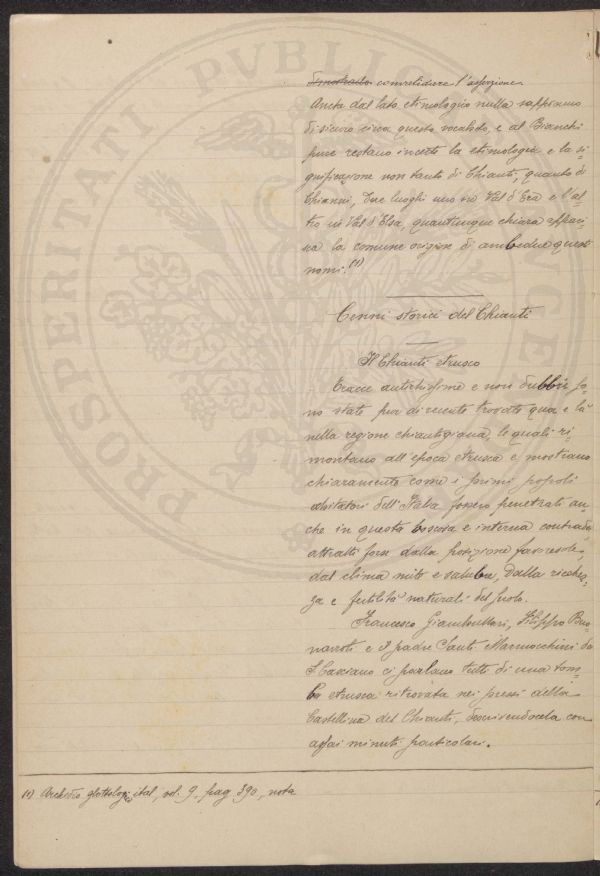 PROSPERITATI PVBLICAE
dimostrado convalidare l'asserzione.
Anche dal lato etimologico nulla sappiamo
di sicuro circa questo vocabolo, e al Bianchi
pure restano incerte la etimologia e la si-
gnificazione non tanto di Chianti, quanto di
Chianni, due luoghi uno in Val d'Era e l'al-
tro in Val d'Elsa, quantunque chiara appari-
sca la comune origine di ambedue questi
nomi.(1)
Cenni storici del Chianti
Il Chianti etrusco
Tracce antichissime e non dubbie so-
no state pur di recente trovate qua e là
nella regione chiantigiana, le quali ri-
montano all'epoca etrusca e mostrano
chiaramente come i primi popoli
abitatori dell'Italia fossero penetrati an-
che in questa boscosa e interna contrada
attratti forse dalla posizione favorevole,
dal clima mite e salubre, dalla ricchez-
za e fertilità naturali del suolo.
Francesco Giambullari, Filippo Buo-
narroti e il padre Santi Marmocchini da
S. Casciano ci parlano tutti di una tom-
ba etrusca ritrovata nei pressi della
Castellina del Chianti, descrivendocela con
assai minuti particolari.
(1) Archivio glottologico ital, vol. 9, pag. 390, nota